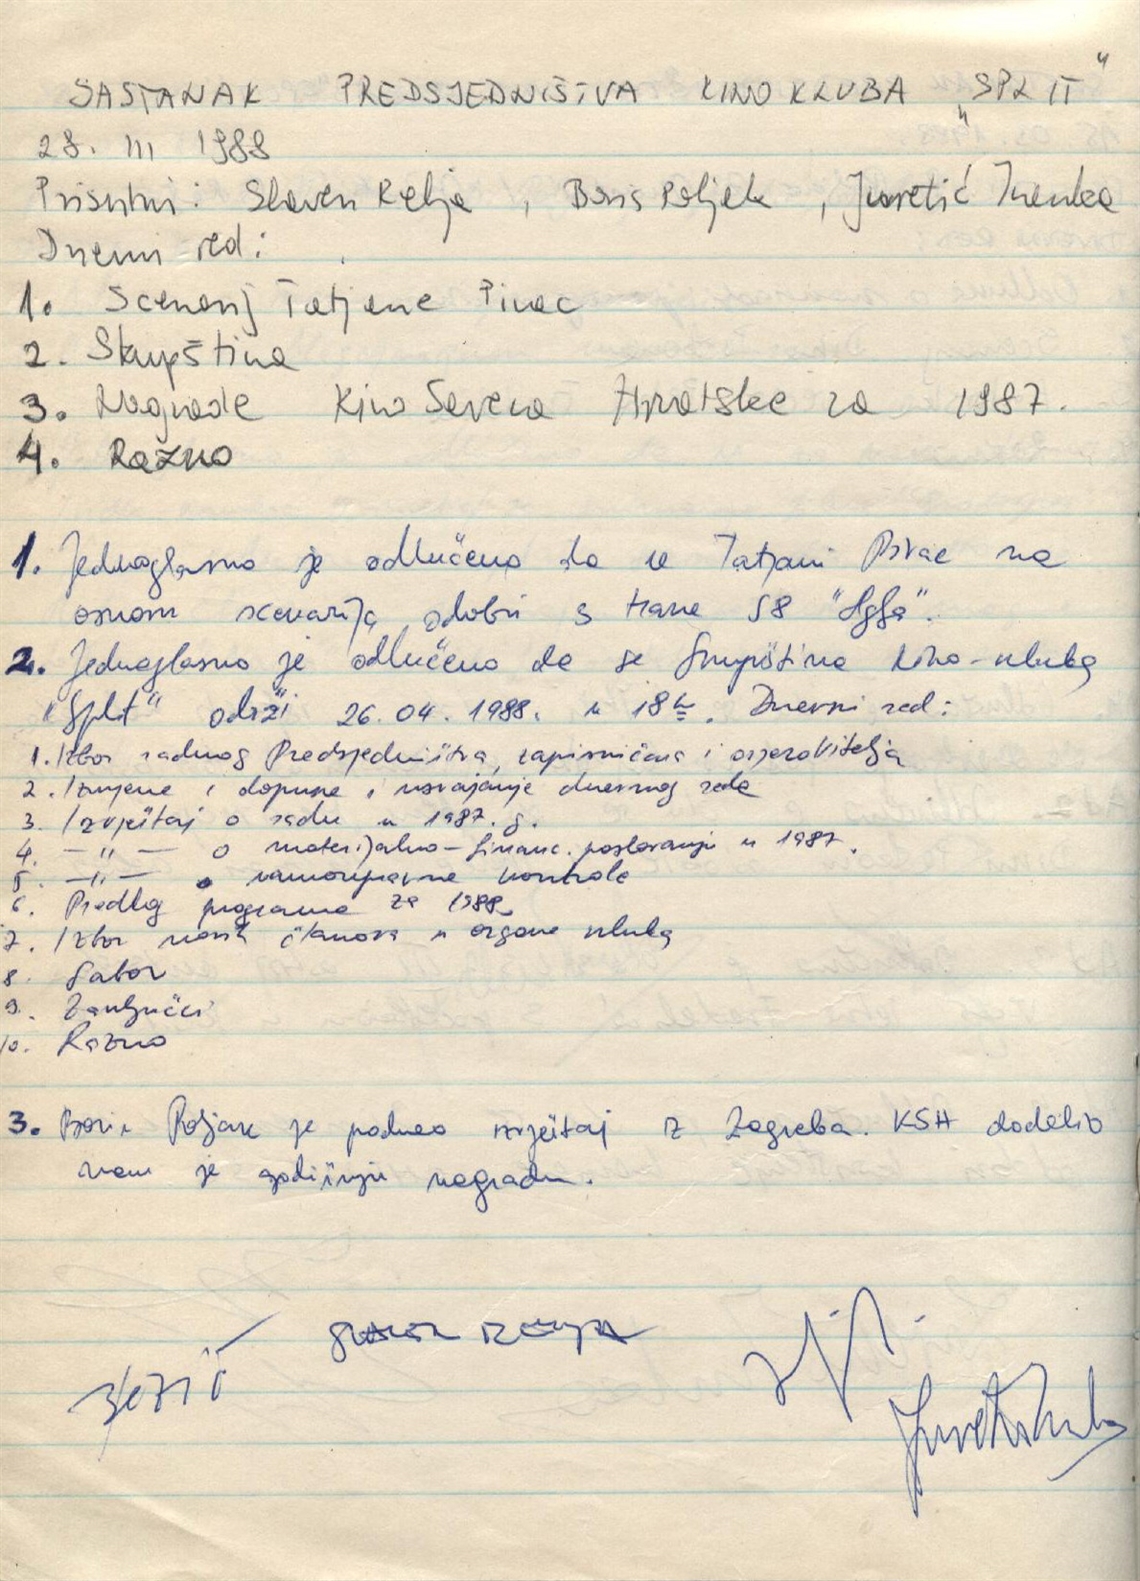 SASTANAK PREDSJEDNIŠTVA KINO KLUBA „SPLIT"
28. III 1988
Prisutni: Slaven Relja, Boris Poljak, Juretić Inenka
Dnevni red:
1. Scenarij Tatjane Pivac
2. Skupština
3. Nagrade Kino Saveza Hrvatske za 1987.
4. Razno
1. Jednoglasno je odlučeno da se Tatjani Pivac na
osnovu scenarija odobri 3 trake S8 "Agfa".
2. Jednoglasno je odlučeno da se Skupština kino-kluba
"Split" održi 26.04.1988. u 18h. Dnevni red:
1. Izbor radnog Predsjedništva, zapisničara i ovjerovitelja
2. Izmjene i dopune i usvajanje dnevnog reda
3. Izvještaj o radu u 1987. g.
4. —"— o materijalno-financ. poslovanju u 1987.
5. —"— o samoupravne kontrole
6. Predlog programa za 1988.
7. Izbor novih članova u organe kluba
8. Sabor
9. Zaključci
10. Razno
3. Boris Poljak je podneo izvještaj iz Zagreba. KSH dodelio
nam je godišnju nagradu.
SLAVEN RELJA